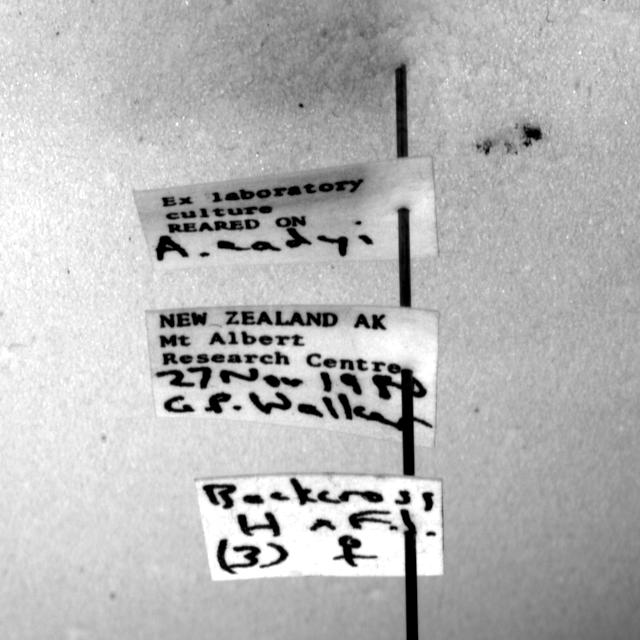 Ex laboratory
culture
REARED ON
A.
NEW ZEALAND AK
Mt Albert
Research Centre
27 Nov 1980
G.P. Walker
Backcross
H
(3) ♀